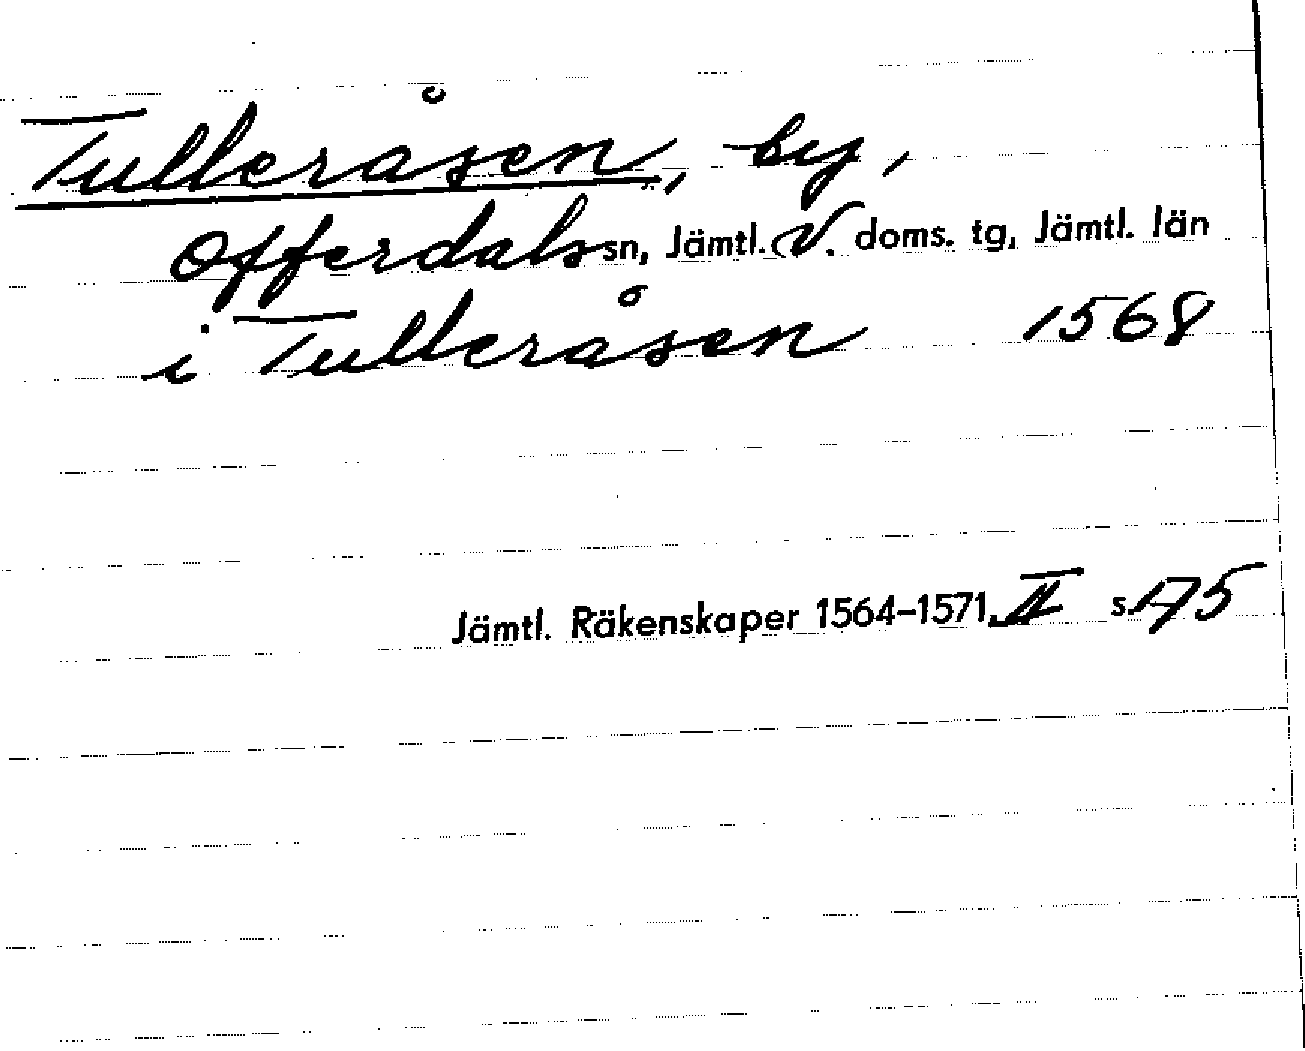 Tulleråsen, by,
Offerdals sn, Jämtl. V. doms. tg, Jämtl. län
i Tulleråsen 1568
Jämtl. Räkenskaper 1564–1571, II s. 175